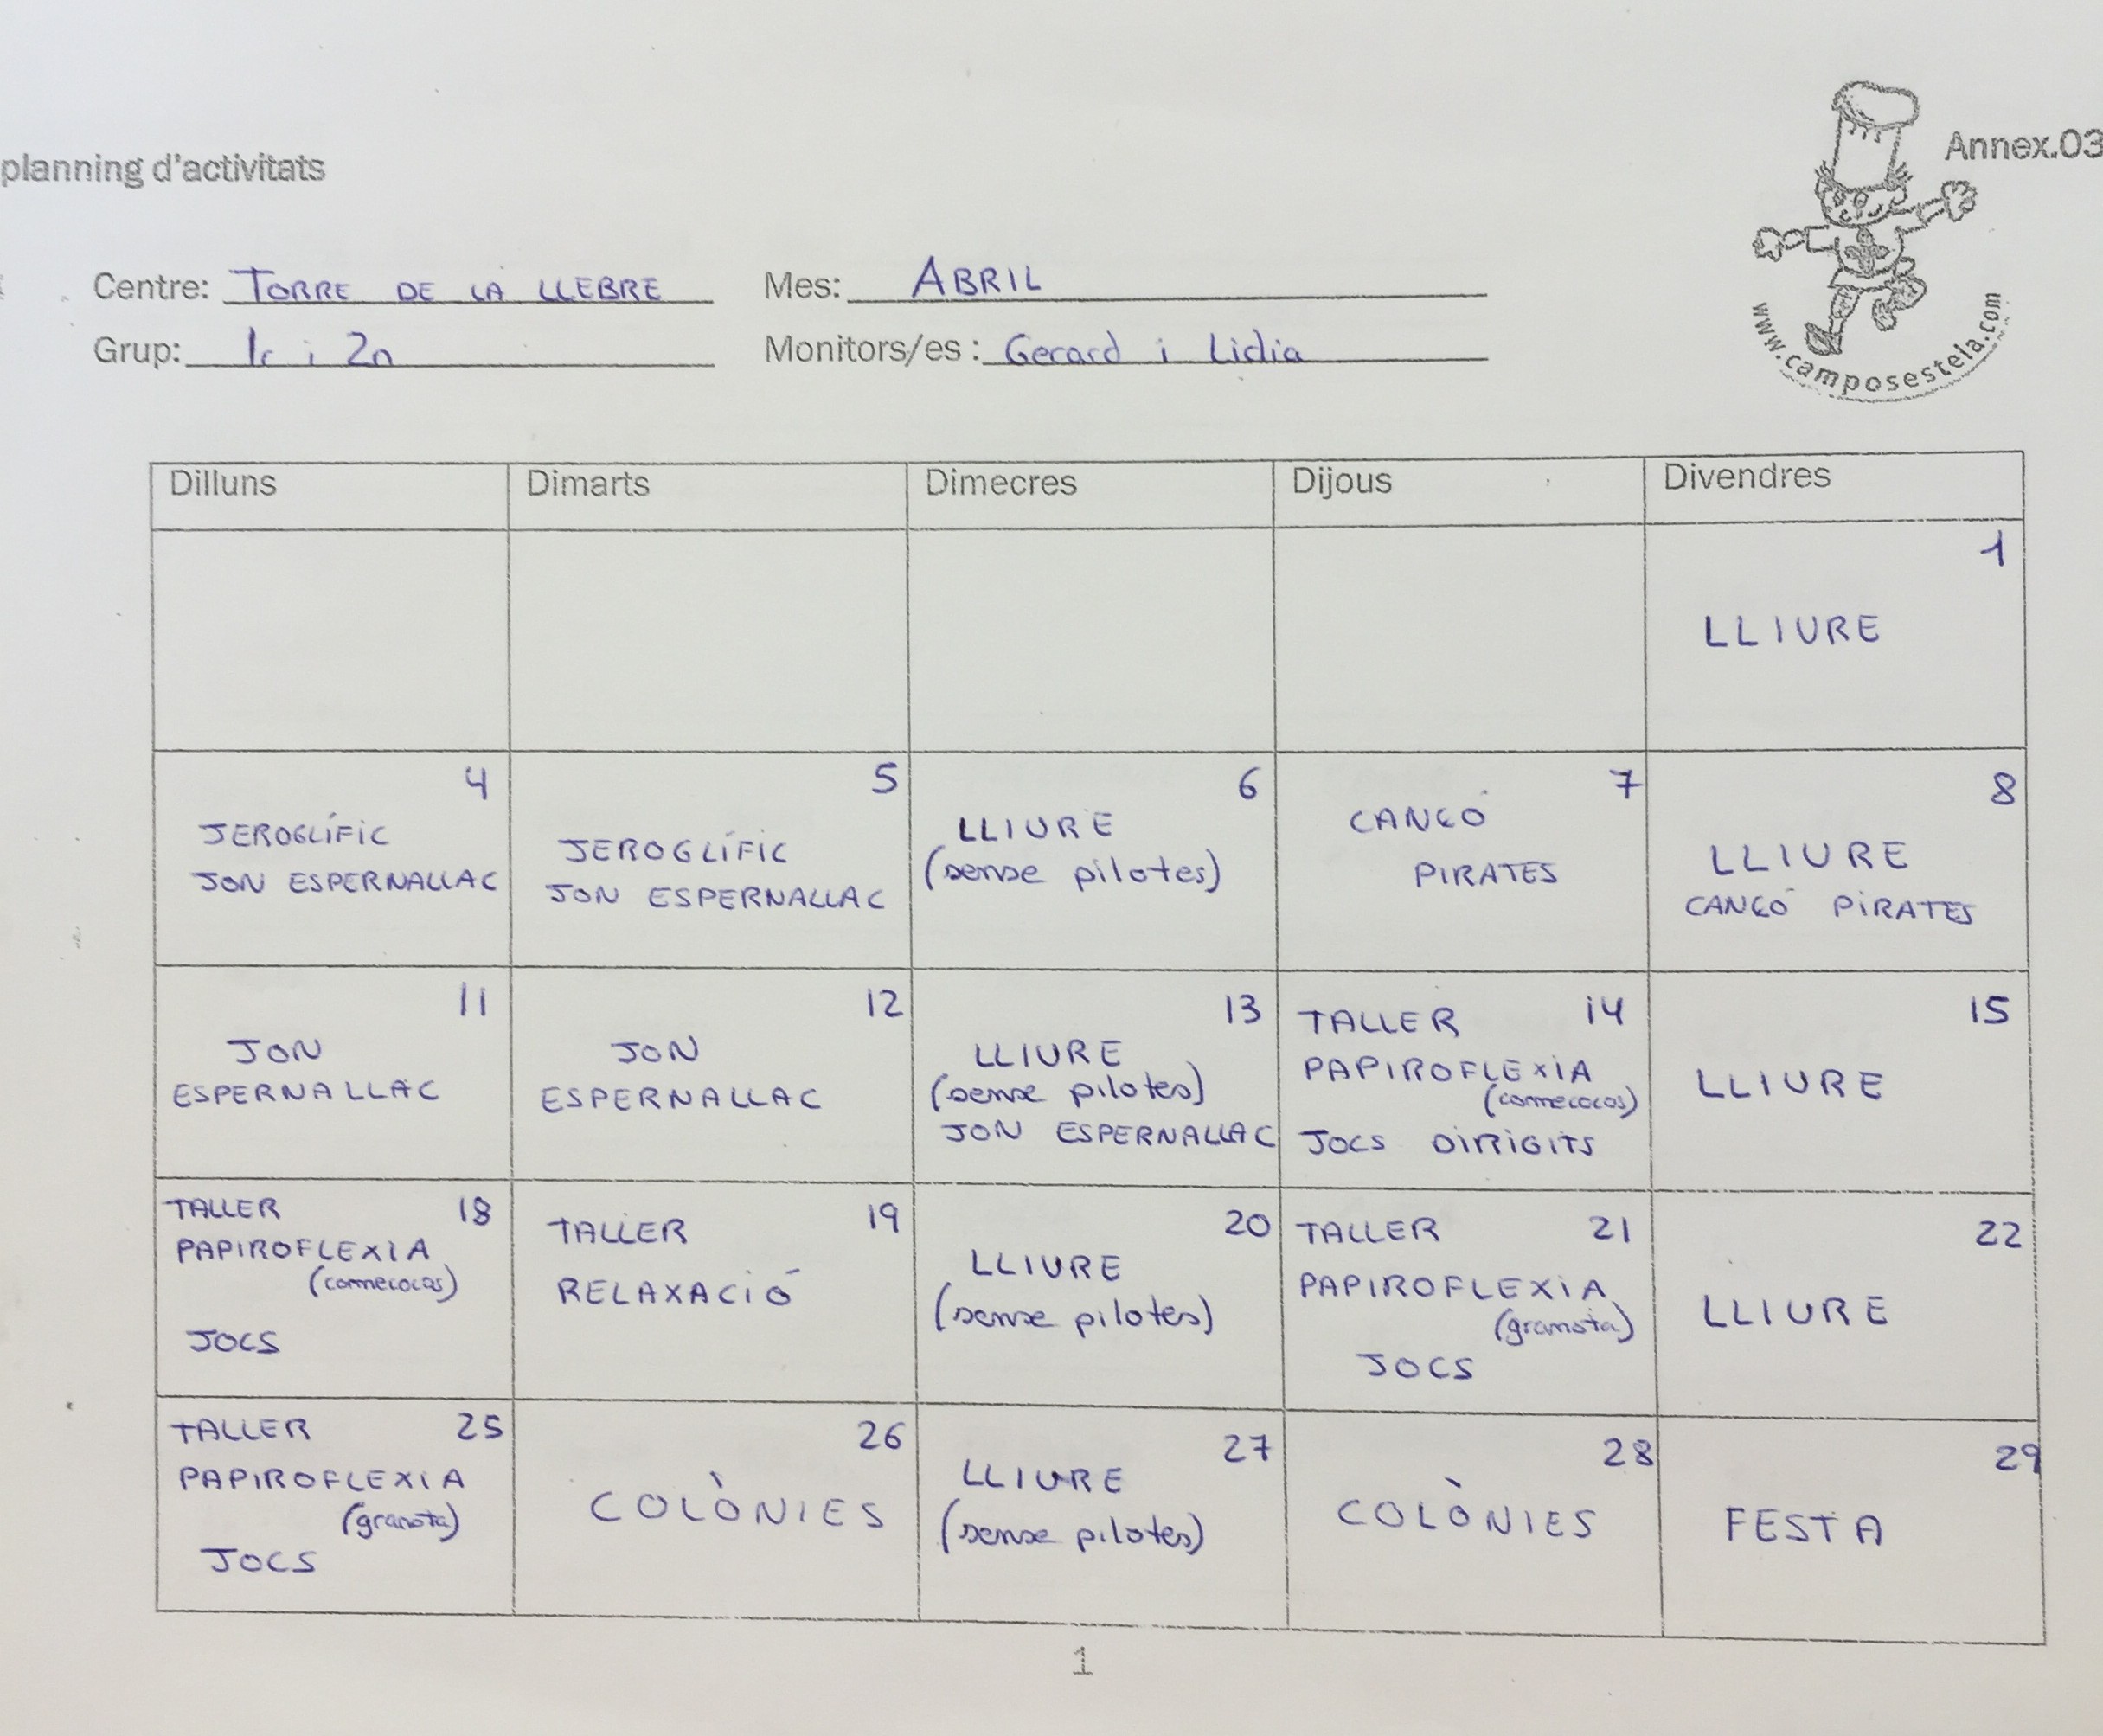 planning d'activitats
Annex.03
Centre: TORRE DE LA LLEBRE
Mes: ABRIL
Grup: 1r i 2n
Monitors/es: Gerard i Lidia
www.camposestela.com
Dilluns Dimarts Dimecres Dijous Divendres
1
LLIURE
4
JEROGLÍFIC
JON ESPERNALLAC
5
JEROGLÍFIC
JON ESPERNALLAC
6
LLIURE
(sense pilotes)
7
CANÇÓ
PIRATES
8
LLIURE
CANÇÓ PIRATES
11
JON
ESPERNALLAC
12
JON
ESPERNALLAC
13
LLIURE
(sense pilotes)
JON ESPERNALLAC
TALLER 14
PAPIROFLEXIA
(comecocos)
JOCS DIRIGITS
15
LLIURE
TALLER 18
PAPIROFLEXIA
(comecocos)
JOCS
TALLER 19
RELAXACIÓ
20
LLIURE
(sense pilotes)
TALLER 21
PAPIROFLEXIA
(granota)
JOCS
22
LLIURE
TALLER 25
PAPIROFLEXIA
(granota)
JOCS
26
COLÒNIES
27
LLIURE
(sense pilotes)
28
COLÒNIES
29
FESTA
1